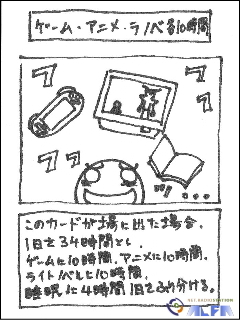 ゲーム・アニメ・ラノベ各10時間
フ
フ
フ
フ
…
このカードが場に出た場合、
1日を34時間とし、
ゲームに10時間、アニメに10時間、
ライトノベルに10時間、
睡眠に4時間1日をふり分ける。